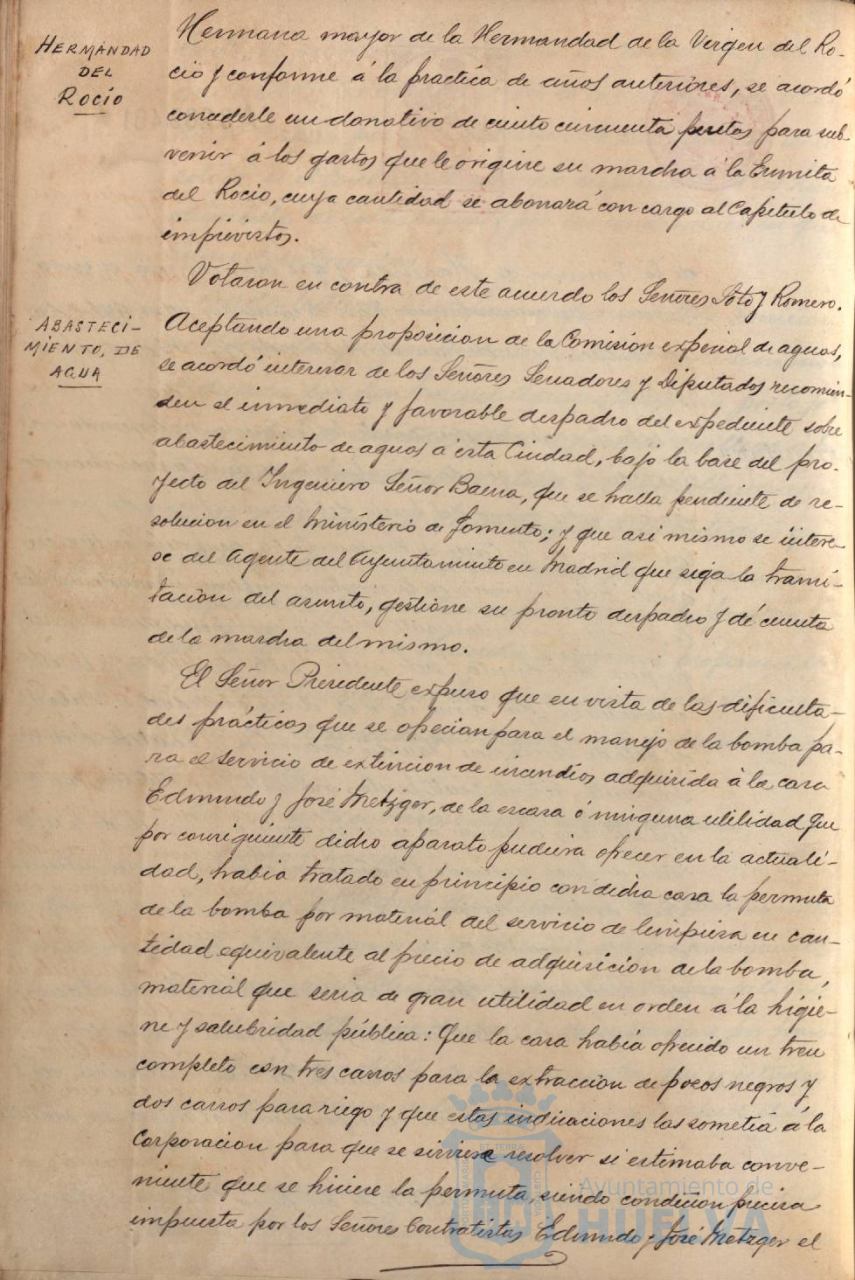 HERMANDAD
DEL
ROCÍO
Hermana mayor de la Hermandad de la Virgen del Ro-
cio y conforme á la practica de años anteriores, se acordó
concederle un donativo de ciento cincuenta pesetas para sub-
venir á los gastos que le origine su marcha á la Ermita
del Rocio, cuya cantidad se abonará con cargo al Capítulo de
imprevistos.
Votaron en contra de este acuerdo los Señores Soto y Romero.
ABASTECI-
MIENTO, DE
AGUA
Aceptando una proposicion de la Comision especial de aguas,
se acordó interesar de los Señores Senadores y Diputados recomien-
den el inmediato y favorable despacho del expediente sobre
abastecimiento de aguas á esta Ciudad, bajo la base del pro-
yecto del Ingeniero Señor Baena, que se halla pendiente de re-
solucion en el Ministerio de Fomento; y que asi mismo se intere-
se del Agente del Ayuntamiento en Madrid que siga la trami-
tacion del asunto, gestione su pronto despacho y dé cuenta
de la marcha del mismo.
El Señor Presidente expuso que en vista de las dificulta-
des prácticas que se ofrecian para el manejo de la bomba pa-
ra el servicio de extincion de incendios adquirida á la casa
Edmundo y José Metzger, de la escasa ó ninguna utilidad que
por consiguiente dicho aparato pudiera ofrecer en la actuali-
dad, habia tratado en principio con dicha casa la permuta
de la bomba por material del servicio de limpieza en can-
tidad equivalente al precio de adquisicion de la bomba,
material que seria de gran utilidad en orden á la higie-
ne y salubridad pública: Que la casa habia ofrecido un tren
completo con tres carros para la extraccion de pozos negros y
dos carros para riego y que estas indicaciones las sometia á la
Corporacion para que se sirviera resolver si estimaba conve-
niente que se hiciese la permuta, siendo condicion precisa
impuesta por los Señores Contratistas Edmundo y José Metzger el
Ayuntamiento de
HUELVA